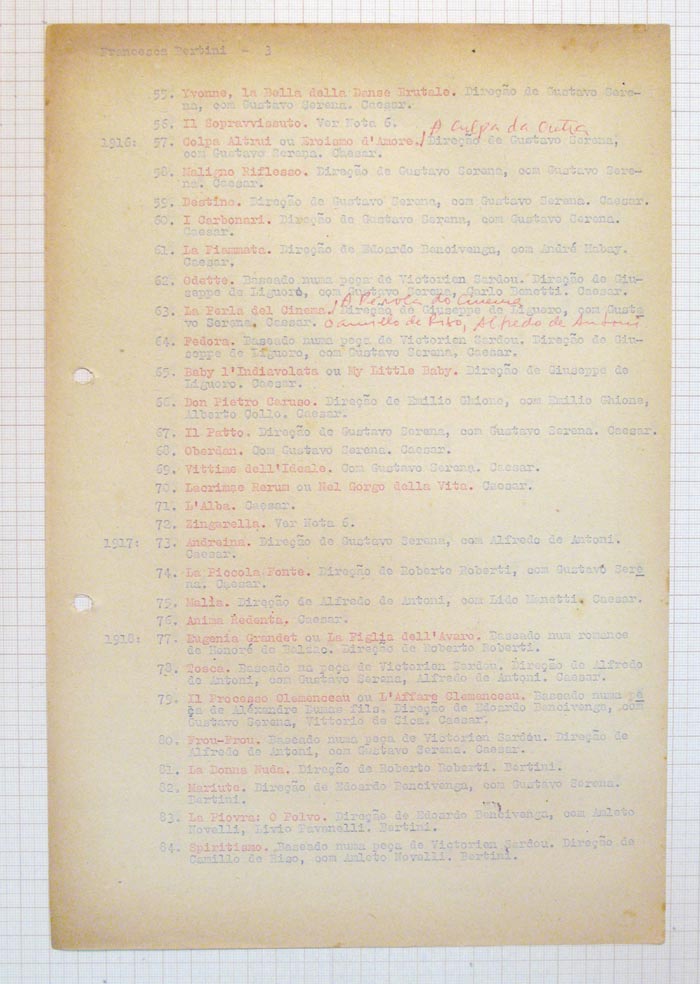 Francesca Bertini - 3
55. Yvonne, la Bella della Danse Brutale. Direção de Gustavo Sere-
na, com Gustavo Serena. Caesar.
56. Il Sopravvissuto. Ver Nota 6.
A Culpa da Outra
1916: 57. Colpa Altrui ou Eroismo d'Amore./ Direção de Gustavo Serena,
com Gustavo Serena. Caesar.
58. Maligno Riflesso. Direção de Gustavo Serena, com Gustavo Sere-
na. Caesar.
59. Destino. Direção de Gustavo Serena, com Gustavo Serena. Caesar.
60. I Carbonari. Direção de Gustavo Serena, com Gustavo Serena.
Caesar.
61. La Fiammata. Direção de Edoardo Bencivenga, com André Habay.
Caesar.
62. Odette. Baseado numa peça de Victorien Sardou. Direção de Giu-
seppe de Liguoro, com Gustavo Serena, Carlo Benetti. Caesar.
A Pérola do Cinema
63. La Perla del Cinema./ Direção de Giuseppe de Liguoro, com Gusta
vo Serena. Caesar. Camillo de Riso, Alfredo de Antoni
64. Fedora. Baseado numa peça de Victorien Sardou. Direção de Giu-
seppe de Liguoro, com Gustavo Serena, Caesar.
65. Baby l'Indiavolata ou My Little Baby. Direção de Giuseppe de
Liguoro. Caesar.
66. Don Pietro Caruso. Direção de Emilio Ghione, com Emilio Ghione,
Alberto Collo. Caesar.
67. Il Patto. Direção de Gustavo Serena, com Gustavo Serena. Caesar.
68. Oberdan. Com Gustavo Serena. Caesar.
69. Vittime dell'Ideale. Com Gustavo Serena. Caesar.
70. Lacrimae Rerum ou Nel Gorgo della Vita. Caesar.
71. L'Alba. Caesar.
72. Zingarella. Ver Nota 6.
1917: 73. Andreina. Direção de Gustavo Serena, com Alfredo de Antoni.
Caesar.
74. La Piccola Fonte. Direção de Roberto Roberti, com Gustavo Sere
na. Caesar.
75. Malia. Direção de Alfredo de Antoni, com Lido Manetti. Caesar.
76. Anima Redenta. Caesar.
1918: 77. Eugenia Grandet ou La Figlia dell'Avaro. Baseado num romance
de Honoré de Balzac. Direção de Roberto Roberti.
78. Tosca. Baseado na peça de Victorien Sardou. Direção de Alfredo
de Antoni, com Gustavo Serena, Alfredo de Antoni. Caesar.
79. Il Processo Clemenceau ou L'Affare Clemenceau. Baseado numa pe
ça de Alexandre Dumas fils. Direção de Edoardo Bencivenga, com
Gustavo Serena, Vittorio de Sica. Caesar.
80. Frou-Frou. Baseado numa peça de Victorien Sardou. Direção de
Alfredo de Antoni, com Gustavo Serena. Caesar.
81. La Donna Nuda. Direção de Roberto Roberti. Bertini.
82. Mariute. Direção de Edoardo Bencivenga, com Gustavo Serena.
Bertini.
83. La Piovra: O Polvo. Direção de Edoardo Bencivenga, com Amleto
Novelli, Livio Pavanelli. Bertini.
84. Spiritismo. Baseado numa peça de Victorien Sardou. Direção de
Camillo de Riso, com Amleto Novelli. Bertini.